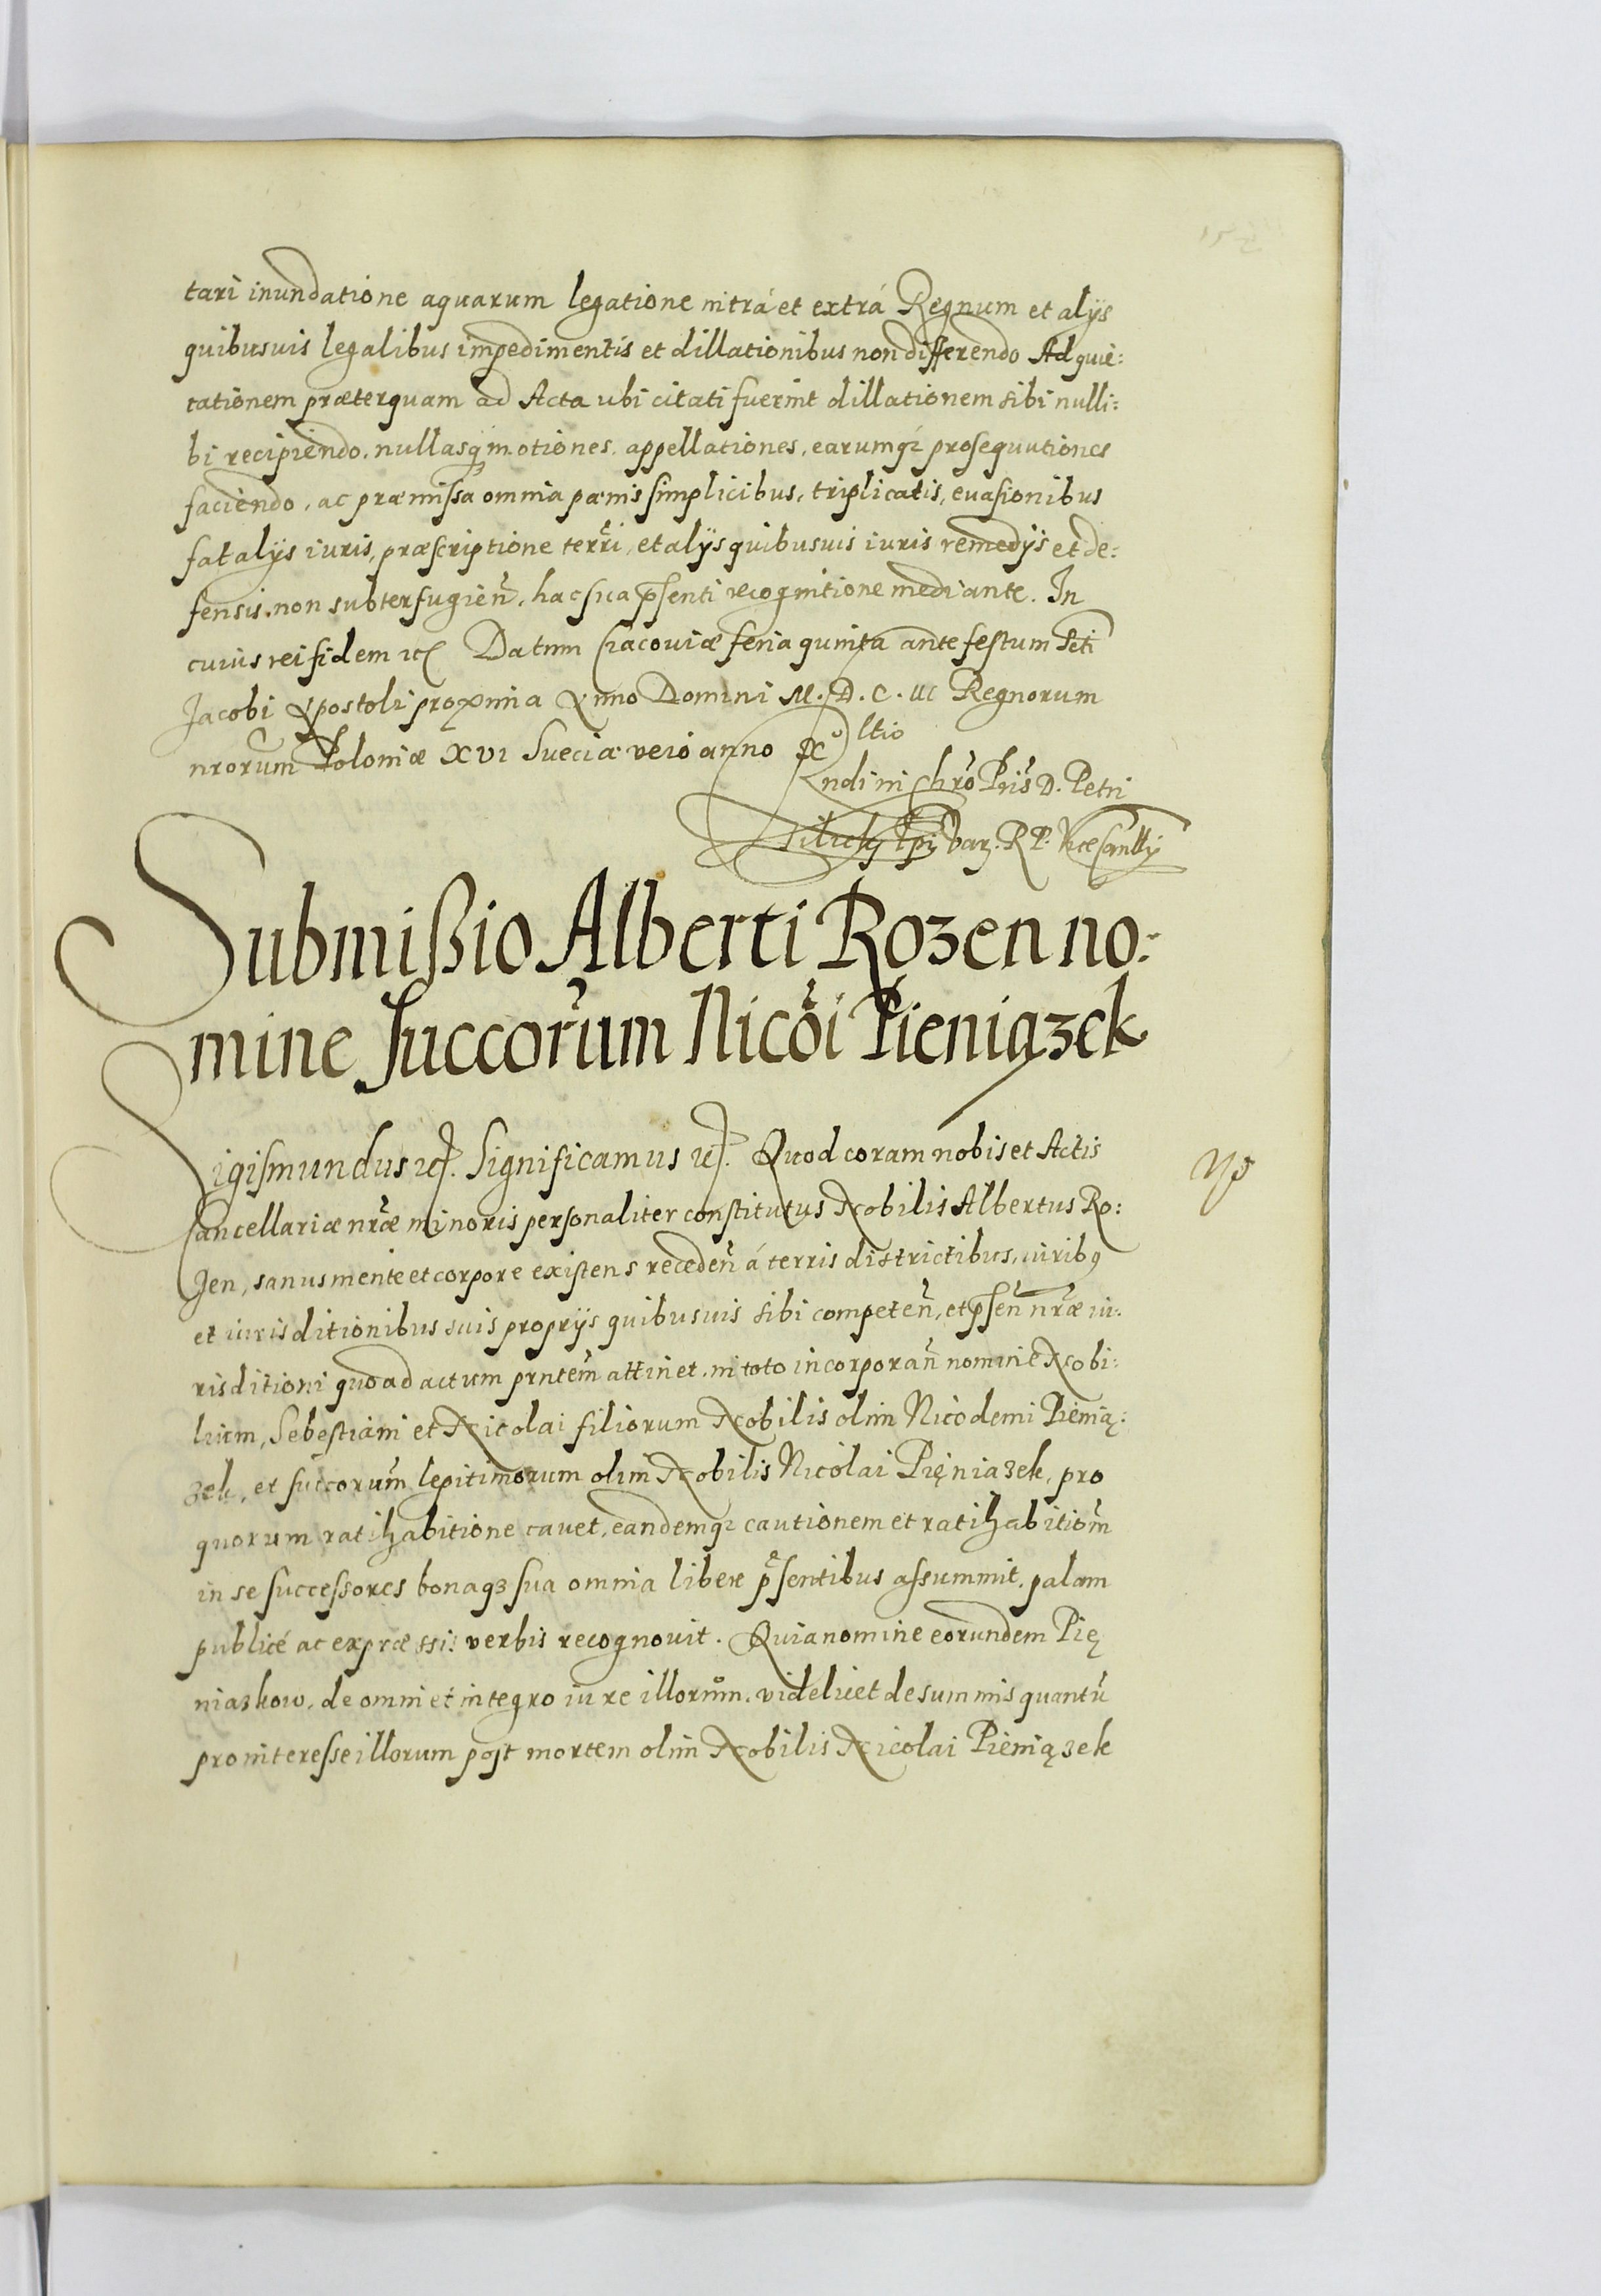 tari inundatione aquarum legatione intrá et extrá Regnum et alÿs
quibusuis legalibus impedimentis et dillationibus non differendo Ad quie:
tationem præterquam ad Acta ubi citati fuerint dillationem sibi nulli:
bi recipiendo, nullasq motiones, appellationes, earumq; prosequutiones
faciendo, ac præmissa omnia pænis simplicibus, triplicatis, euasionibus
fatalÿs iuris, præscriptione terri, et alÿs quibusuis iuris remedÿs et de:
fensis, non subterfugien̄, hac sua p̄senti recognitione mediante. In
cuius rei fidem etc Datum Cracouiæ feria quinta ante festum Scti
Jacobi Apostoli proxima Anno Domini M. D. C. III Regnorum
nrorum Poloniæ XVI Sueciæ vero anno X
ltio
Rndi in Chrō Pris D. Petri
Tilicky Epi Var. R P. Vicecanlly
Submißio Alberti Rozen no:
mine succorum Nicoi Pieniązek
Sigismundus etc. Significamus etc. Quod coram nobis et Actis
Cancellariæ nræ minoris personaliter constitutus Nobilis Albertus Ro:
zen, sanus mente et corpore existens receden̄ á terris districtibus, iuribꝯ
et iurisditionibus suis proprÿs quibusuis sibi competen̄, et p̄sen̄ nræ iu:
risditioni quo ad actum pntem attinet, in toto incorporan̄ nomine Nobi:
lium, Sebestiani et Nicolai filiorum Nobilis olim Nicodemi Pienią:
zek, et succorum legitimorum olim Nobilis Nicolai Pięniazek, pro
quorum ratihabitione cauet, eandemq; cautionem et ratihabitiom̄
in se successores bonaqꝫ sua omnia libere p̄sentibus assummit, palam
publicé ac expræssis verbis recognouit. Quia nomine eorundem Pię
niazkow, de omni et integro iure illorum, videlicet de summis quantū
pro interesse illorum post mortem olim Nobilis Nicolai Pieniązek